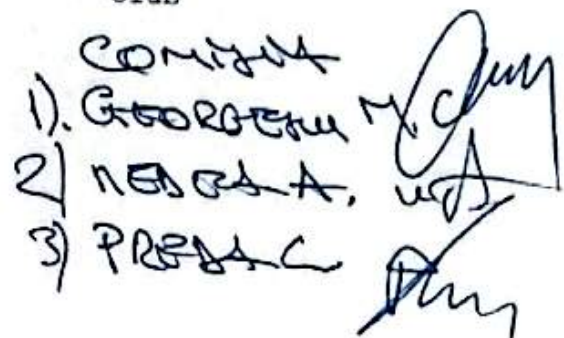 COMISIA
1). GEORGESCU M. C
2) NEDELA A.
3) PREDA C